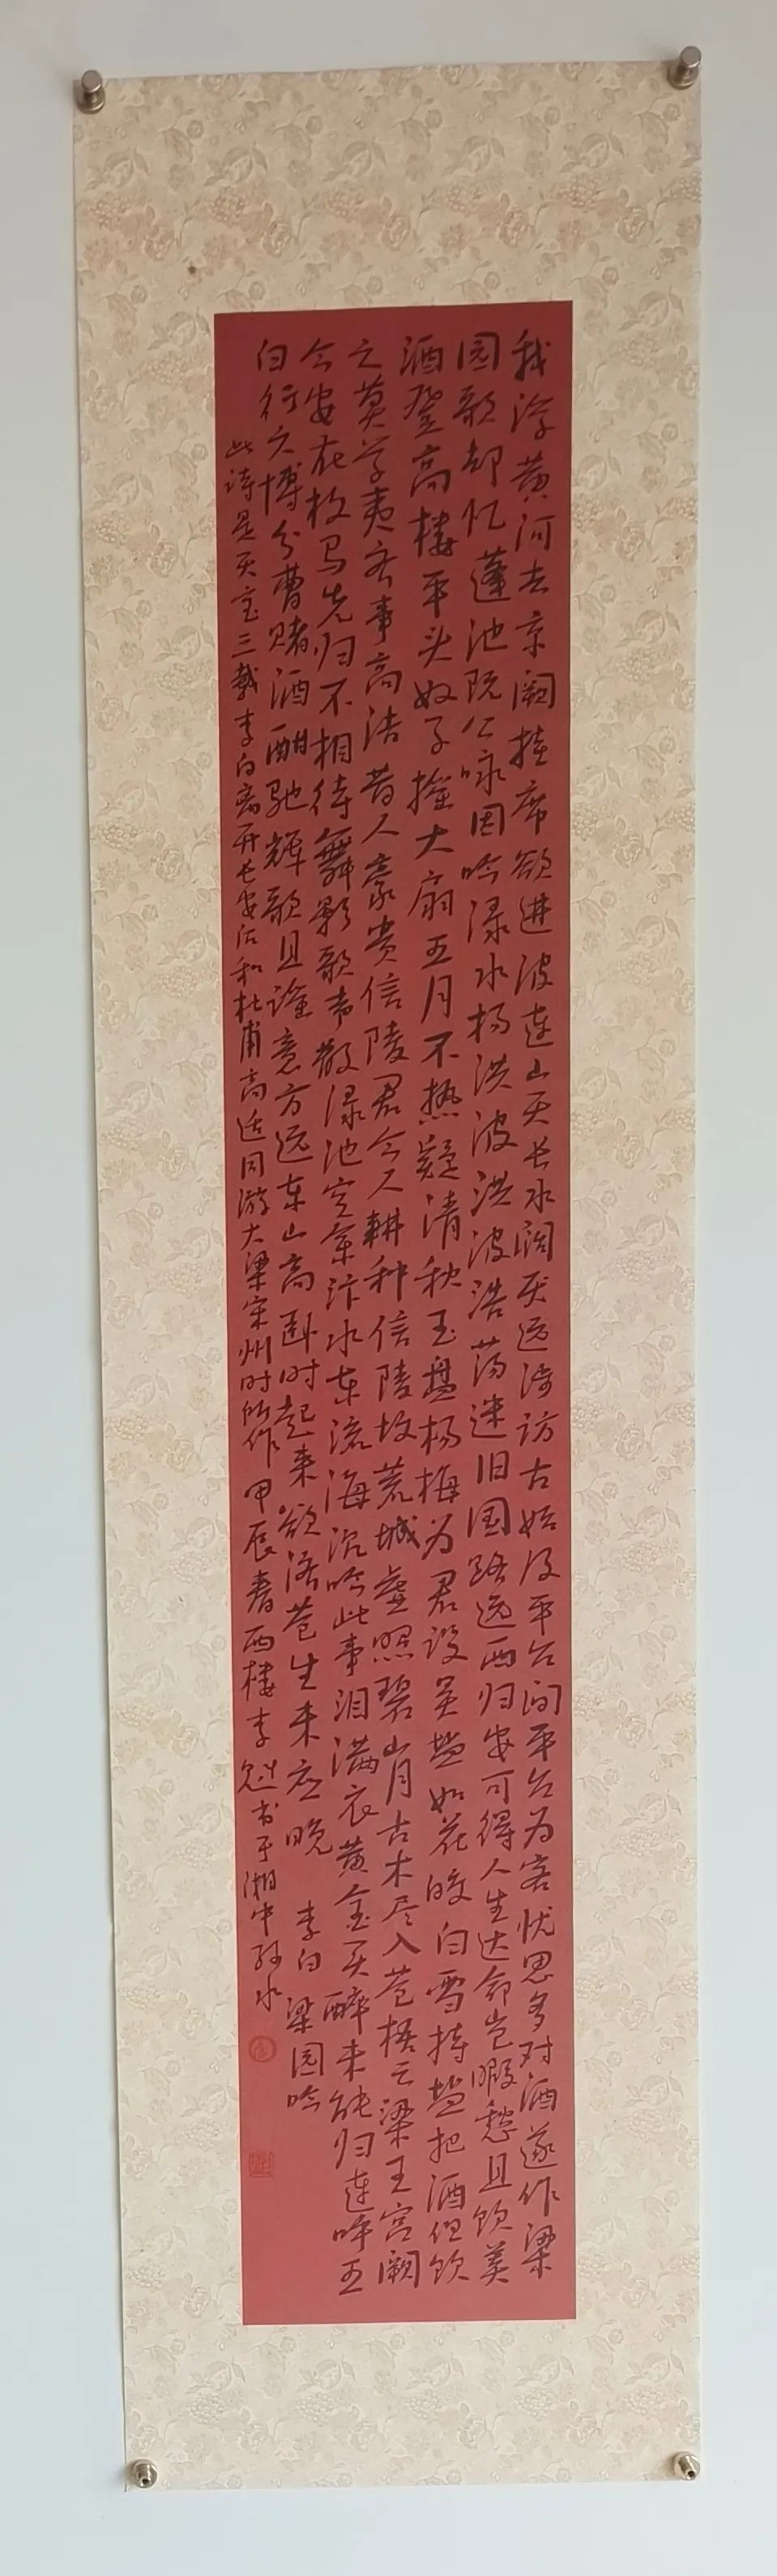 我浮黄河去京阙挂席欲进波连山天长水阔厌远涉访古始及平台间平台为客忧思多对酒遂作梁
园歌却忆蓬池阮公咏因吟渌水扬洪波洪波浩荡迷旧国路远西归安可得人生达命岂暇愁且饮美
酒登高楼平头奴子摇大扇五月不热疑清秋玉盘杨梅为君设吴盐如花皎白雪持盐把酒但饮
之莫学夷齐事高洁昔人豪贵信陵君今人耕种信陵坟荒城虚照碧山月古木尽入苍梧云梁王宫阙
今安在枚马先归不相待舞影歌声散渌池空余汴水东流海沉吟此事泪满衣黄金买醉未能归连呼五
白行六博分曹赌酒酣驰辉歌且谣意方远东山高卧时起来欲济苍生未应晚 李白 梁园吟
此诗是天宝三载李白离开长安后和杜甫高适同游大梁宋州时所作 甲辰春西楼李 书于湘中 水